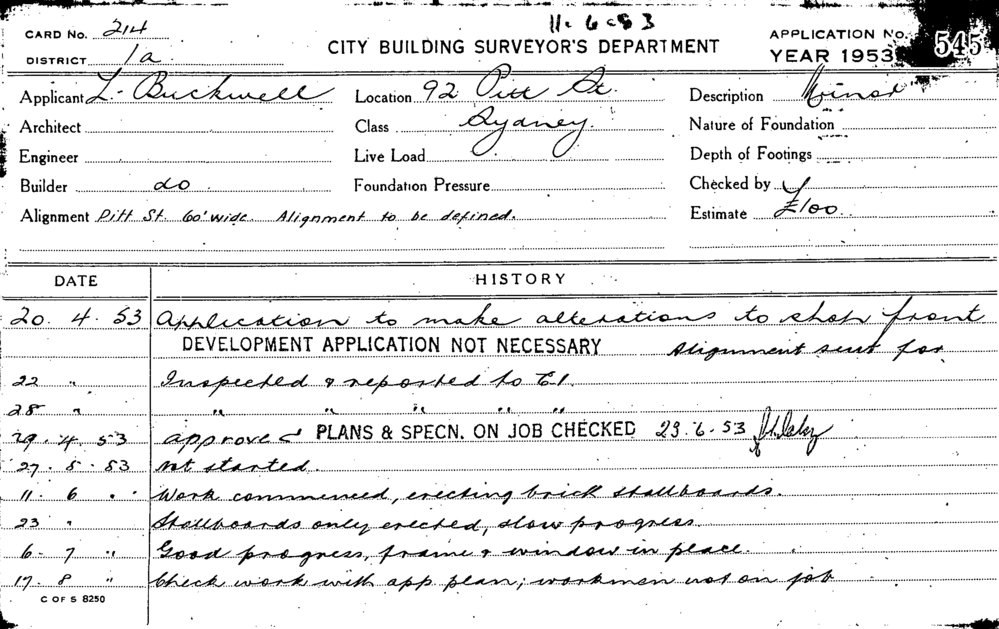 11. 6. 53
CARD No. 214
CITY BUILDING SURVEYOR'S DEPARTMENT
APPLICATION No. 545
DISTRICT 1a.
YEAR 1953
Applicant L. Buckwell
Location 92 Pitt St.
Description Minor
Architect
Class Sydney.
Nature of Foundation
Engineer
Live Load
Depth of Footings
Builder do
Foundation Pressure
Checked by
Alignment Pitt St. 60' wide. Alignment to be defined.
Estimate £100
DATE HISTORY
20. 4. 53 Application to make alterations to shop front
DEVELOPMENT APPLICATION NOT NECESSARY Alignment sent for
22 " Inspected & reported to C.I.
28 " " " " " "
29. 4. 53 approved PLANS & SPECN. ON JOB CHECKED 23.6.53
27. 5. 53 Not started.
11. 6 " Work commenced, erecting brick stallboards.
23 " Stallboards only erected, slow progress
6. 7 " Good progress, frame & window in place.
17. 8 " Check work with app. plan; workmen not on job
C OF S 8250